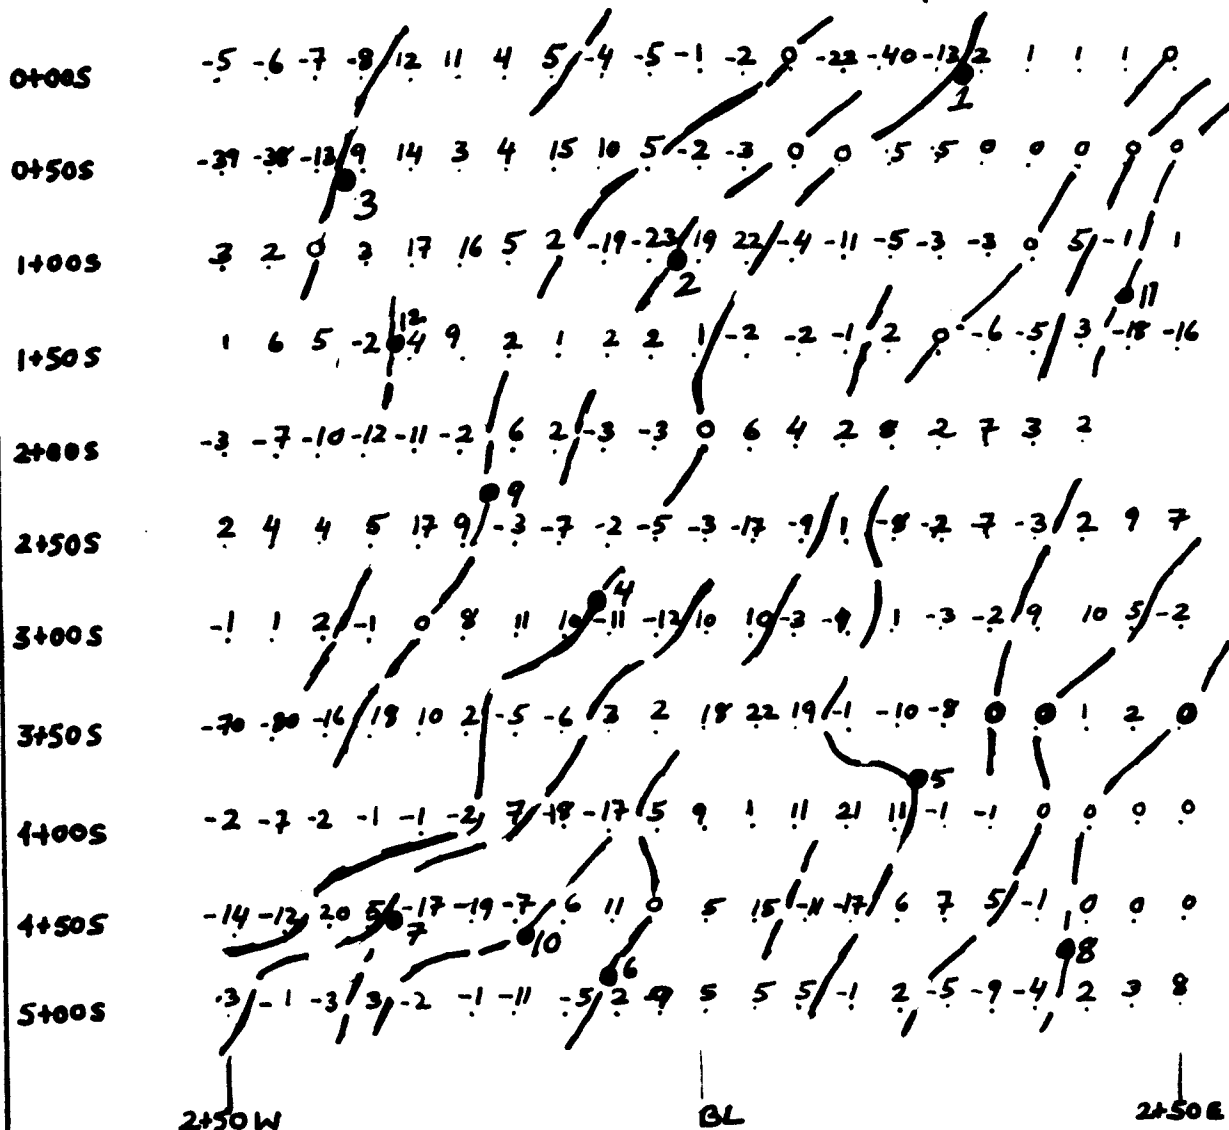 0+00S -5 -6 -7 -8 12 11 4 5 -4 -5 -1 -2 0 -22 -40 -13 2 1 1 1 0
1
0+50S -39 -38 -13 9 14 3 4 15 10 5 -2 -3 0 0 5 5 0 0 0 0 0
3
1+00S 3 2 0 3 17 16 5 2 -19 -23 19 22 -4 -11 -5 -3 -3 0 5 -1 1
2
11
12
1+50S 1 6 5 -2 4 9 2 1 2 2 1 -2 -2 -1 2 0 -6 -5 3 -18 -16
2+00S -3 -7 -10 -12 -11 -2 6 2 -3 -3 0 6 4 2 8 2 7 3 2
9
2+50S 2 4 4 5 17 9 -3 -7 -2 -5 -3 -17 -9 1 -8 -2 -7 -3 2 9 7
4
3+00S -1 1 2 -1 0 8 11 10 -11 -12 10 10 -3 1 -3 -2 9 10 5 -2
3+50S -70 -80 -16 18 10 2 -5 -6 3 2 18 22 19 -1 -10 -8 0 0 1 2 0
5
4+00S -2 -7 -2 -1 -1 -2 7 -18 -17 5 9 1 11 21 11 -1 -1 0 0 0 0
4+50S -14 -12 20 5 -17 -19 -7 6 11 0 5 15 -11 -17 6 7 5 -1 0 0 0
7
10
6
8
5+00S -3 -1 -3 3 -2 -1 -11 -5 2 -9 5 5 5 -1 2 -5 -9 -4 2 3 8
2+50W BL 2+50E